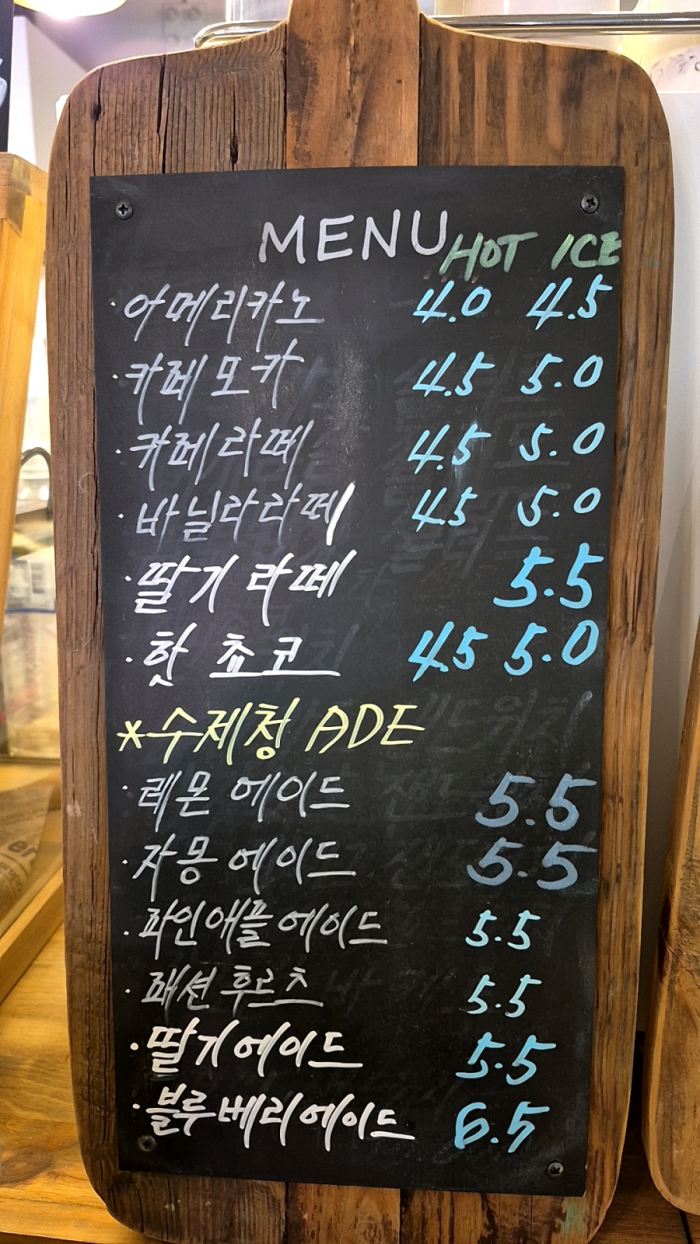 MENU HOT ICE
· 아메리카노 4.0 4.5
· 카페모카 4.5 5.0
· 카페라떼 4.5 5.0
· 바닐라라떼 4.5 5.0
· 딸기 라떼 5.5
· 핫 쵸코 4.5 5.0
*수제청 ADE
· 레몬 에이드 5.5
· 자몽 에이드 5.5
· 파인애플에이드 5.5
· 패션후르츠 5.5
· 딸기에이드 5.5
· 블루베리에이드 6.5